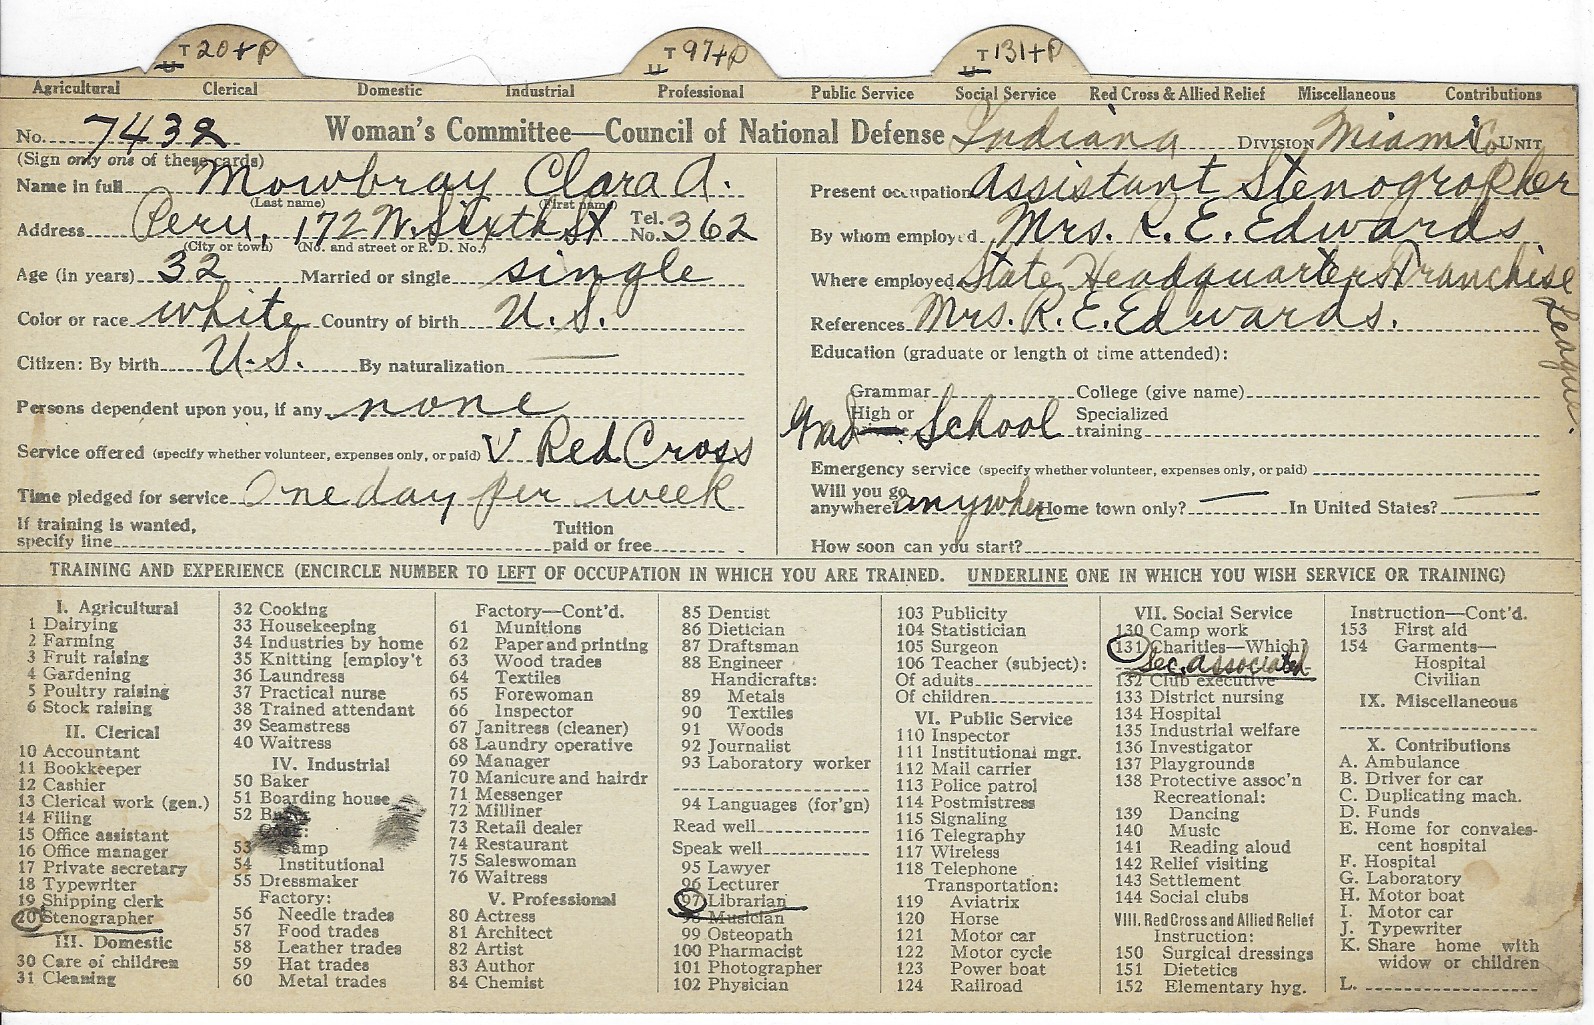 T 20+P T 97+P T 131+P
U U U
Agricultural Clerical Domestic Industrial Professional Public Service Social Service Red Cross & Allied Relief Miscellaneous Contributions
No. 7432 Woman's Committee—Council of National Defense Indiana DIVISION Miami Co. UNIT
(Sign only one of these cards)
Name in full Mowbray Clara A.
(Last name) (First name)
Address Peru, 172 W. Sixth St Tel. No. 362
(City or town) (No. and street or R. D. No.)
Age (in years) 32 Married or single single
Color or race white Country of birth U.S.
Citizen: By birth U.S. By naturalization —
Persons dependent upon you, if any none
Service offered (specify whether volunteer, expenses only, or paid) V Red Cross
Time pledged for service One day per week
If training is wanted, specify line Tuition paid or free
Present occupation Assistant Stenographer
By whom employed Mrs. R. E. Edwards
Where employed State Headquarters Franchise League.
References Mrs. R. E. Edwards.
Education (graduate or length of time attended):
Grammar College (give name)
Grad High or School Specialized training
Emergency service (specify whether volunteer, expenses only, or paid)
Will you go anywhere? anywher Home town only? — In United States? —
How soon can you start?
TRAINING AND EXPERIENCE (ENCIRCLE NUMBER TO LEFT OF OCCUPATION IN WHICH YOU ARE TRAINED. UNDERLINE ONE IN WHICH YOU WISH SERVICE OR TRAINING)
I. Agricultural
1 Dairying
2 Farming
3 Fruit raising
4 Gardening
5 Poultry raising
6 Stock raising
II. Clerical
10 Accountant
11 Bookkeeper
12 Cashier
13 Clerical work (gen.)
14 Filing
15 Office assistant
16 Office manager
17 Private secretary
18 Typewriter
19 Shipping clerk
20 Stenographer
III. Domestic
30 Care of children
31 Cleaning
32 Cooking
33 Housekeeping
34 Industries by home
35 Knitting [employ't
36 Laundress
37 Practical nurse
38 Trained attendant
39 Seamstress
40 Waitress
IV. Industrial
50 Baker
51 Boarding house
52
53 Camp
54 Institutional
55 Dressmaker
Factory:
56 Needle trades
57 Food trades
58 Leather trades
59 Hat trades
60 Metal trades
Factory—Cont'd.
61 Munitions
62 Paper and printing
63 Wood trades
64 Textiles
65 Forewoman
66 Inspector
67 Janitress (cleaner)
68 Laundry operative
69 Manager
70 Manicure and hairdr
71 Messenger
72 Milliner
73 Retail dealer
74 Restaurant
75 Saleswoman
76 Waitress
V. Professional
80 Actress
81 Architect
82 Artist
83 Author
84 Chemist
85 Dentist
86 Dietician
87 Draftsman
88 Engineer
Handicrafts:
89 Metals
90 Textiles
91 Woods
92 Journalist
93 Laboratory worker
94 Languages (for'gn)
Read well
Speak well
95 Lawyer
96 Lecturer
97 Librarian
98 Musician
99 Osteopath
100 Pharmacist
101 Photographer
102 Physician
103 Publicity
104 Statistician
105 Surgeon
106 Teacher (subject):
Of adults
Of children
VI. Public Service
110 Inspector
111 Institutional mgr.
112 Mail carrier
113 Police patrol
114 Postmistress
115 Signaling
116 Telegraphy
117 Wireless
118 Telephone
Transportation:
119 Aviatrix
120 Horse
121 Motor car
122 Motor cycle
123 Power boat
124 Railroad
VII. Social Service
130 Camp work
131 Charities—Which?
Sec. associated
132 Club executive
133 District nursing
134 Hospital
135 Industrial welfare
136 Investigator
137 Playgrounds
138 Protective assoc'n
Recreational:
139 Dancing
140 Music
141 Reading aloud
142 Relief visiting
143 Settlement
144 Social clubs
VIII. Red Cross and Allied Relief
Instruction:
150 Surgical dressings
151 Dietetics
152 Elementary hyg.
Instruction—Cont'd.
153 First aid
154 Garments—
Hospital
Civilian
IX. Miscellaneous
X. Contributions
A. Ambulance
B. Driver for car
C. Duplicating mach.
D. Funds
E. Home for convales-
cent hospital
F. Hospital
G. Laboratory
H. Motor boat
I. Motor car
J. Typewriter
K. Share home with
widow or children
L.